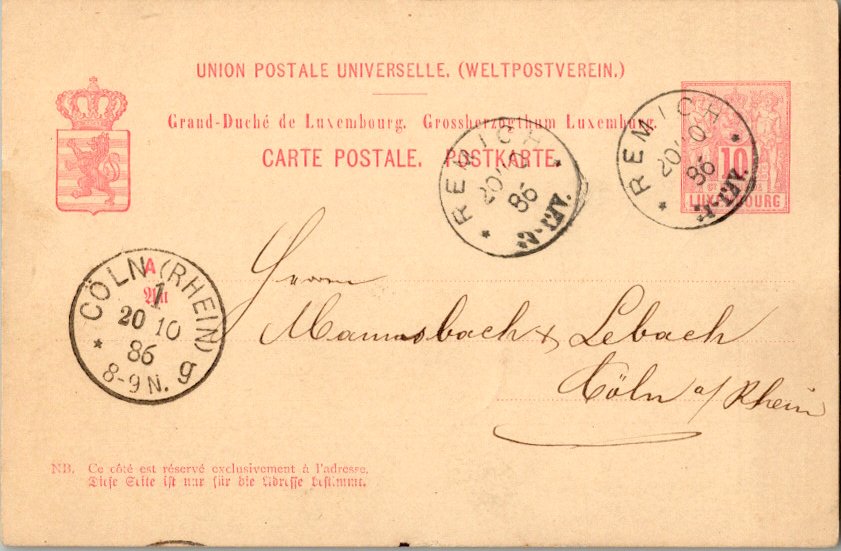 UNION POSTALE UNIVERSELLE. (WELTPOSTVEREIN.)
Grand-Duché de Luxembourg. Grossherzogthum Luxemburg.
CARTE POSTALE. POSTKARTE.
10
LUXEMBOURG
REMICH
20 10
86
REMICH
20 10
86
A
An
CÖLN (RHEIN)
1
20 10
86
8-9 N.
g
Herren
Mamasbach & Lebach
Cöln a/Rhein
NB. Ce côté est réservé exclusivement à l'adresse.
Diese Seite ist nur für die Adresse bestimmt.